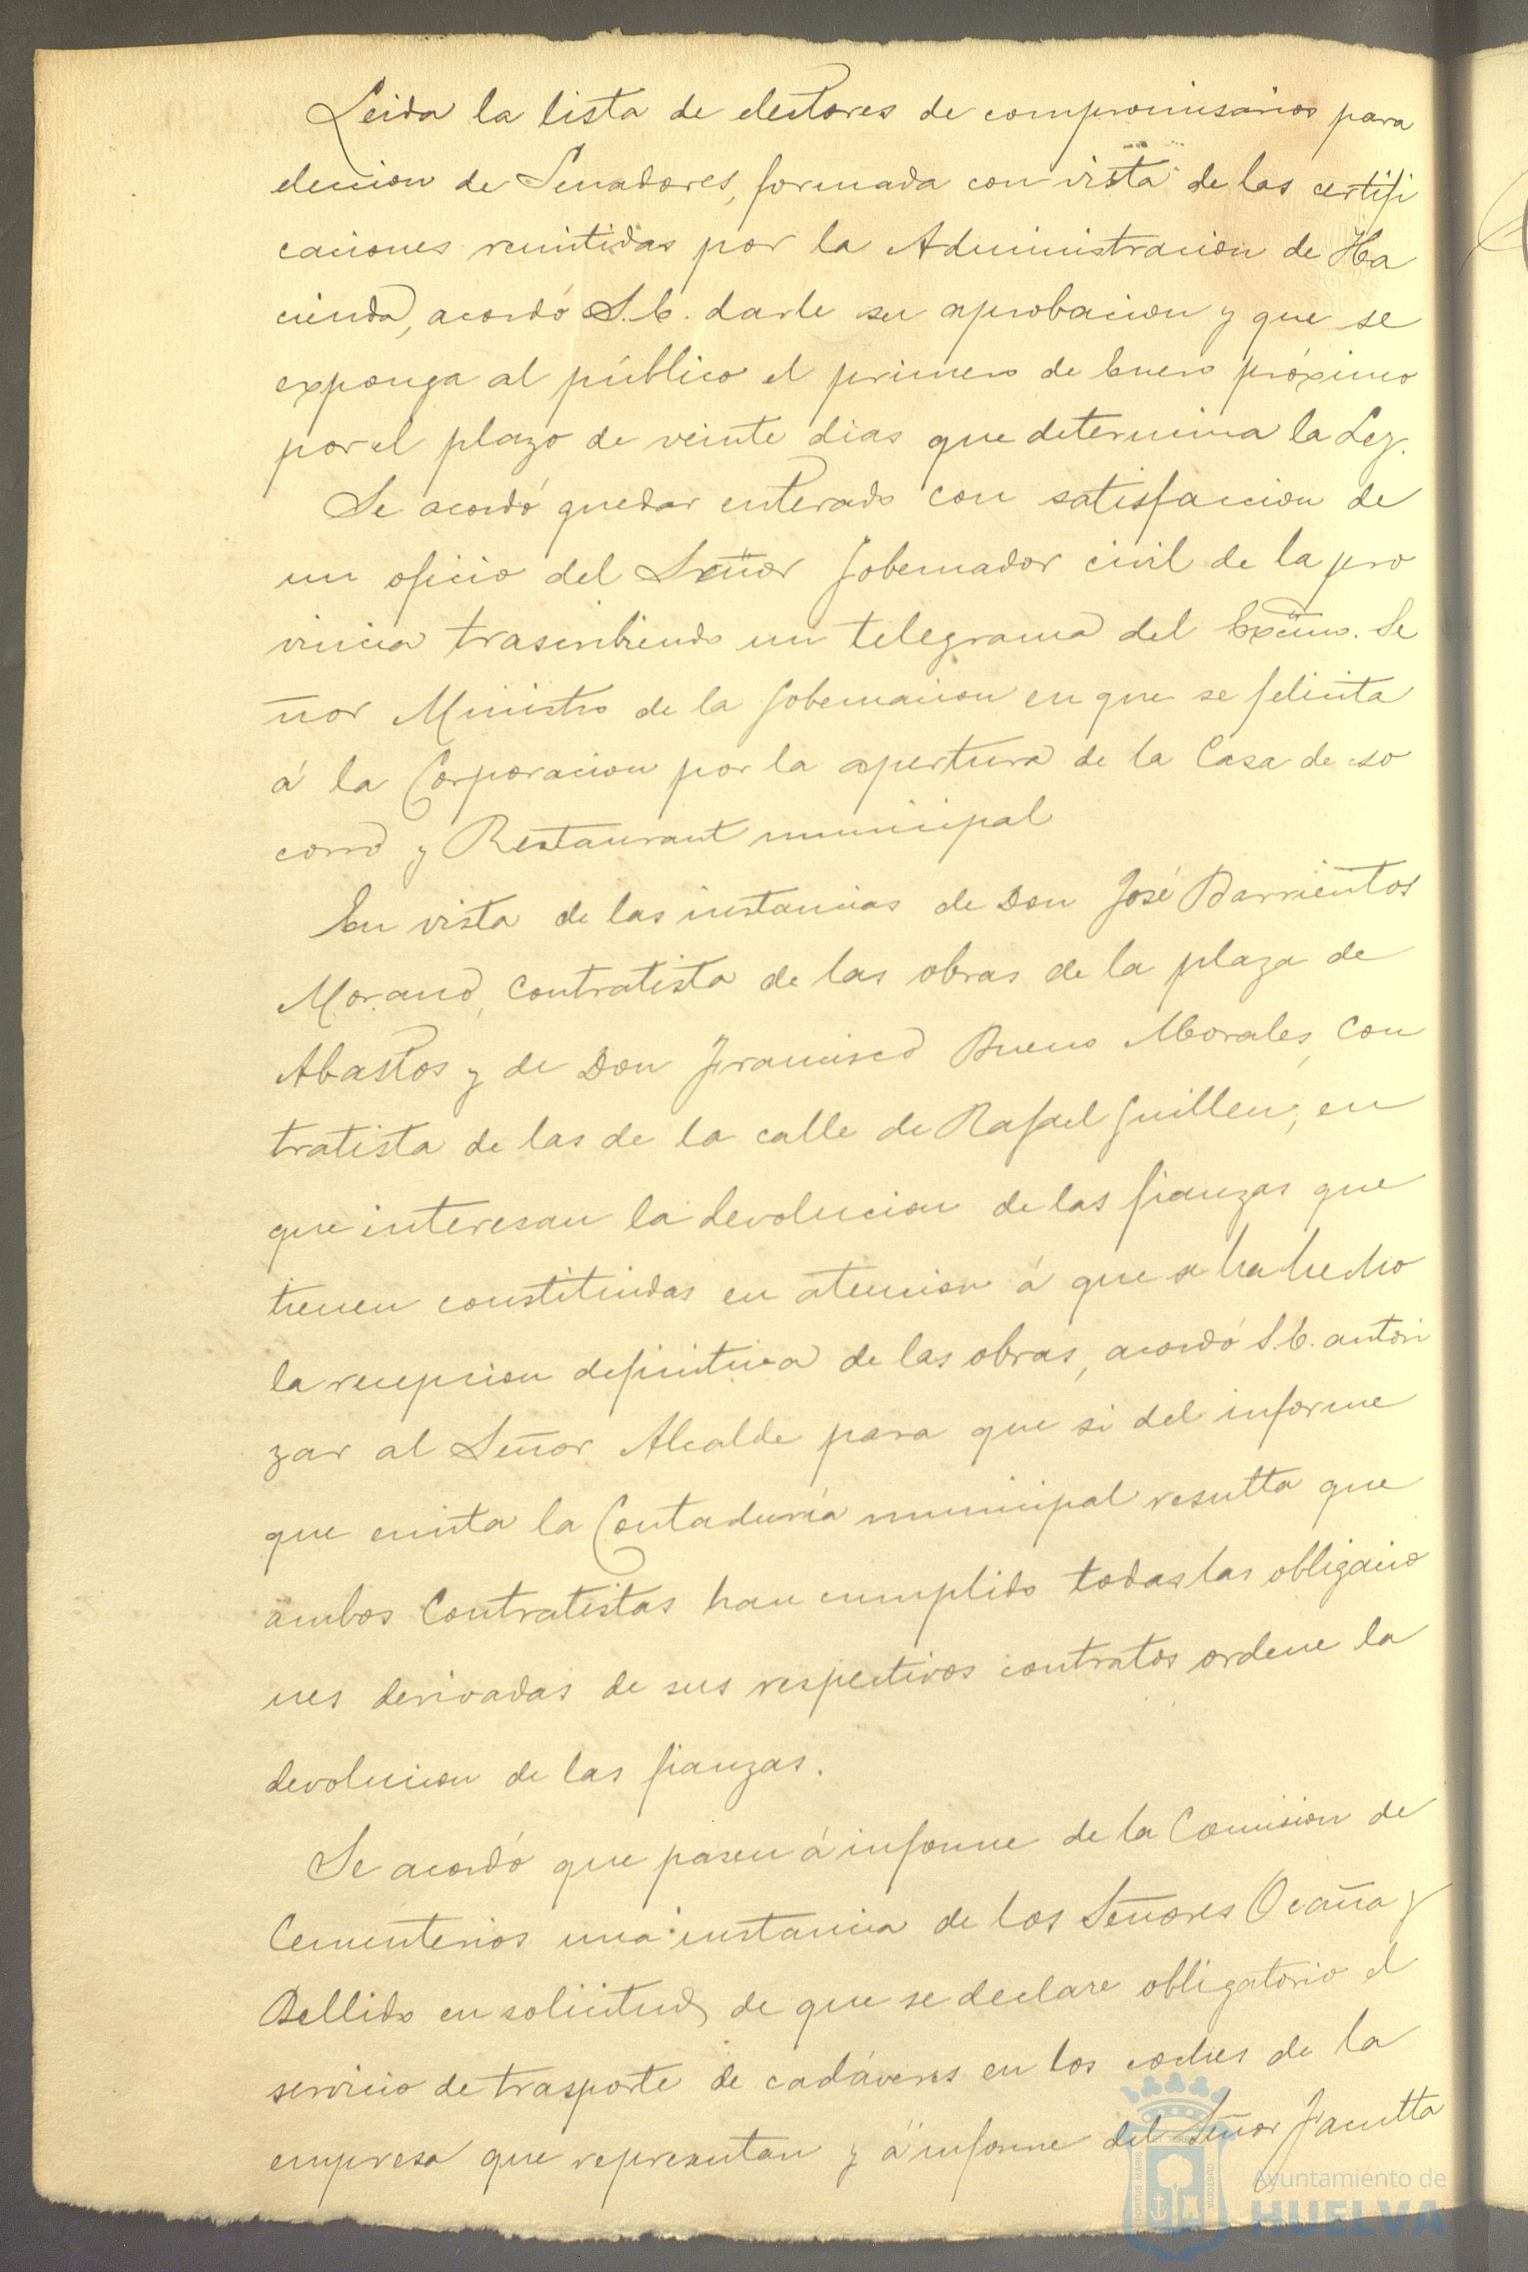 Leida la lista de electores de compromisarios para
eleccion de Senadores, formada con vista de las certifi
caciones remitidas por la Administracion de Ha
cienda, acordó S.E. darle su aprobacion y que se
exponga al público el primero de Enero próximo
por el plazo de veinte dias que determina la Ley.
Se acordó quedar enterado con satisfaccion de
un oficio del Señor Gobernador civil de la pro
vincia trascribiendo un telegrama del Excmo. Se
ñor Ministro de la Gobernacion en que se felicita
á la Corporacion por la apertura de la Casa de so
corro y Restaurant municipal
En vista de las instancias de Don José Barrientos
Morano, contratista de las obras de la plaza de
Abastos y de Don Francisco Bueno Morales, con
tratista de las de la calle de Rafael Guillen, en
que interesan la devolucion de las fianzas que
tienen constituidas en atencion á que se ha hecho
la recepcion definitiva de las obras, acordó S.E. autori
zar al Señor Alcalde para que si del informe
que emita la Contaduría municipal resulta que
ambos Contratistas han cumplido todas las obligacio
nes derivadas de sus respectivos contratos ordene la
devolucion de las fianzas.
Se acordó que pasen á informe de la Comision de
Cementerios una instancia de los Señores Ocaña y
Bellido en solicitud de que se declare obligatorio el
servicio de trasporte de cadáveres en los coches de la
empresa que representan y á informe del Señor Faculta
Ayuntamiento de
HUELVA